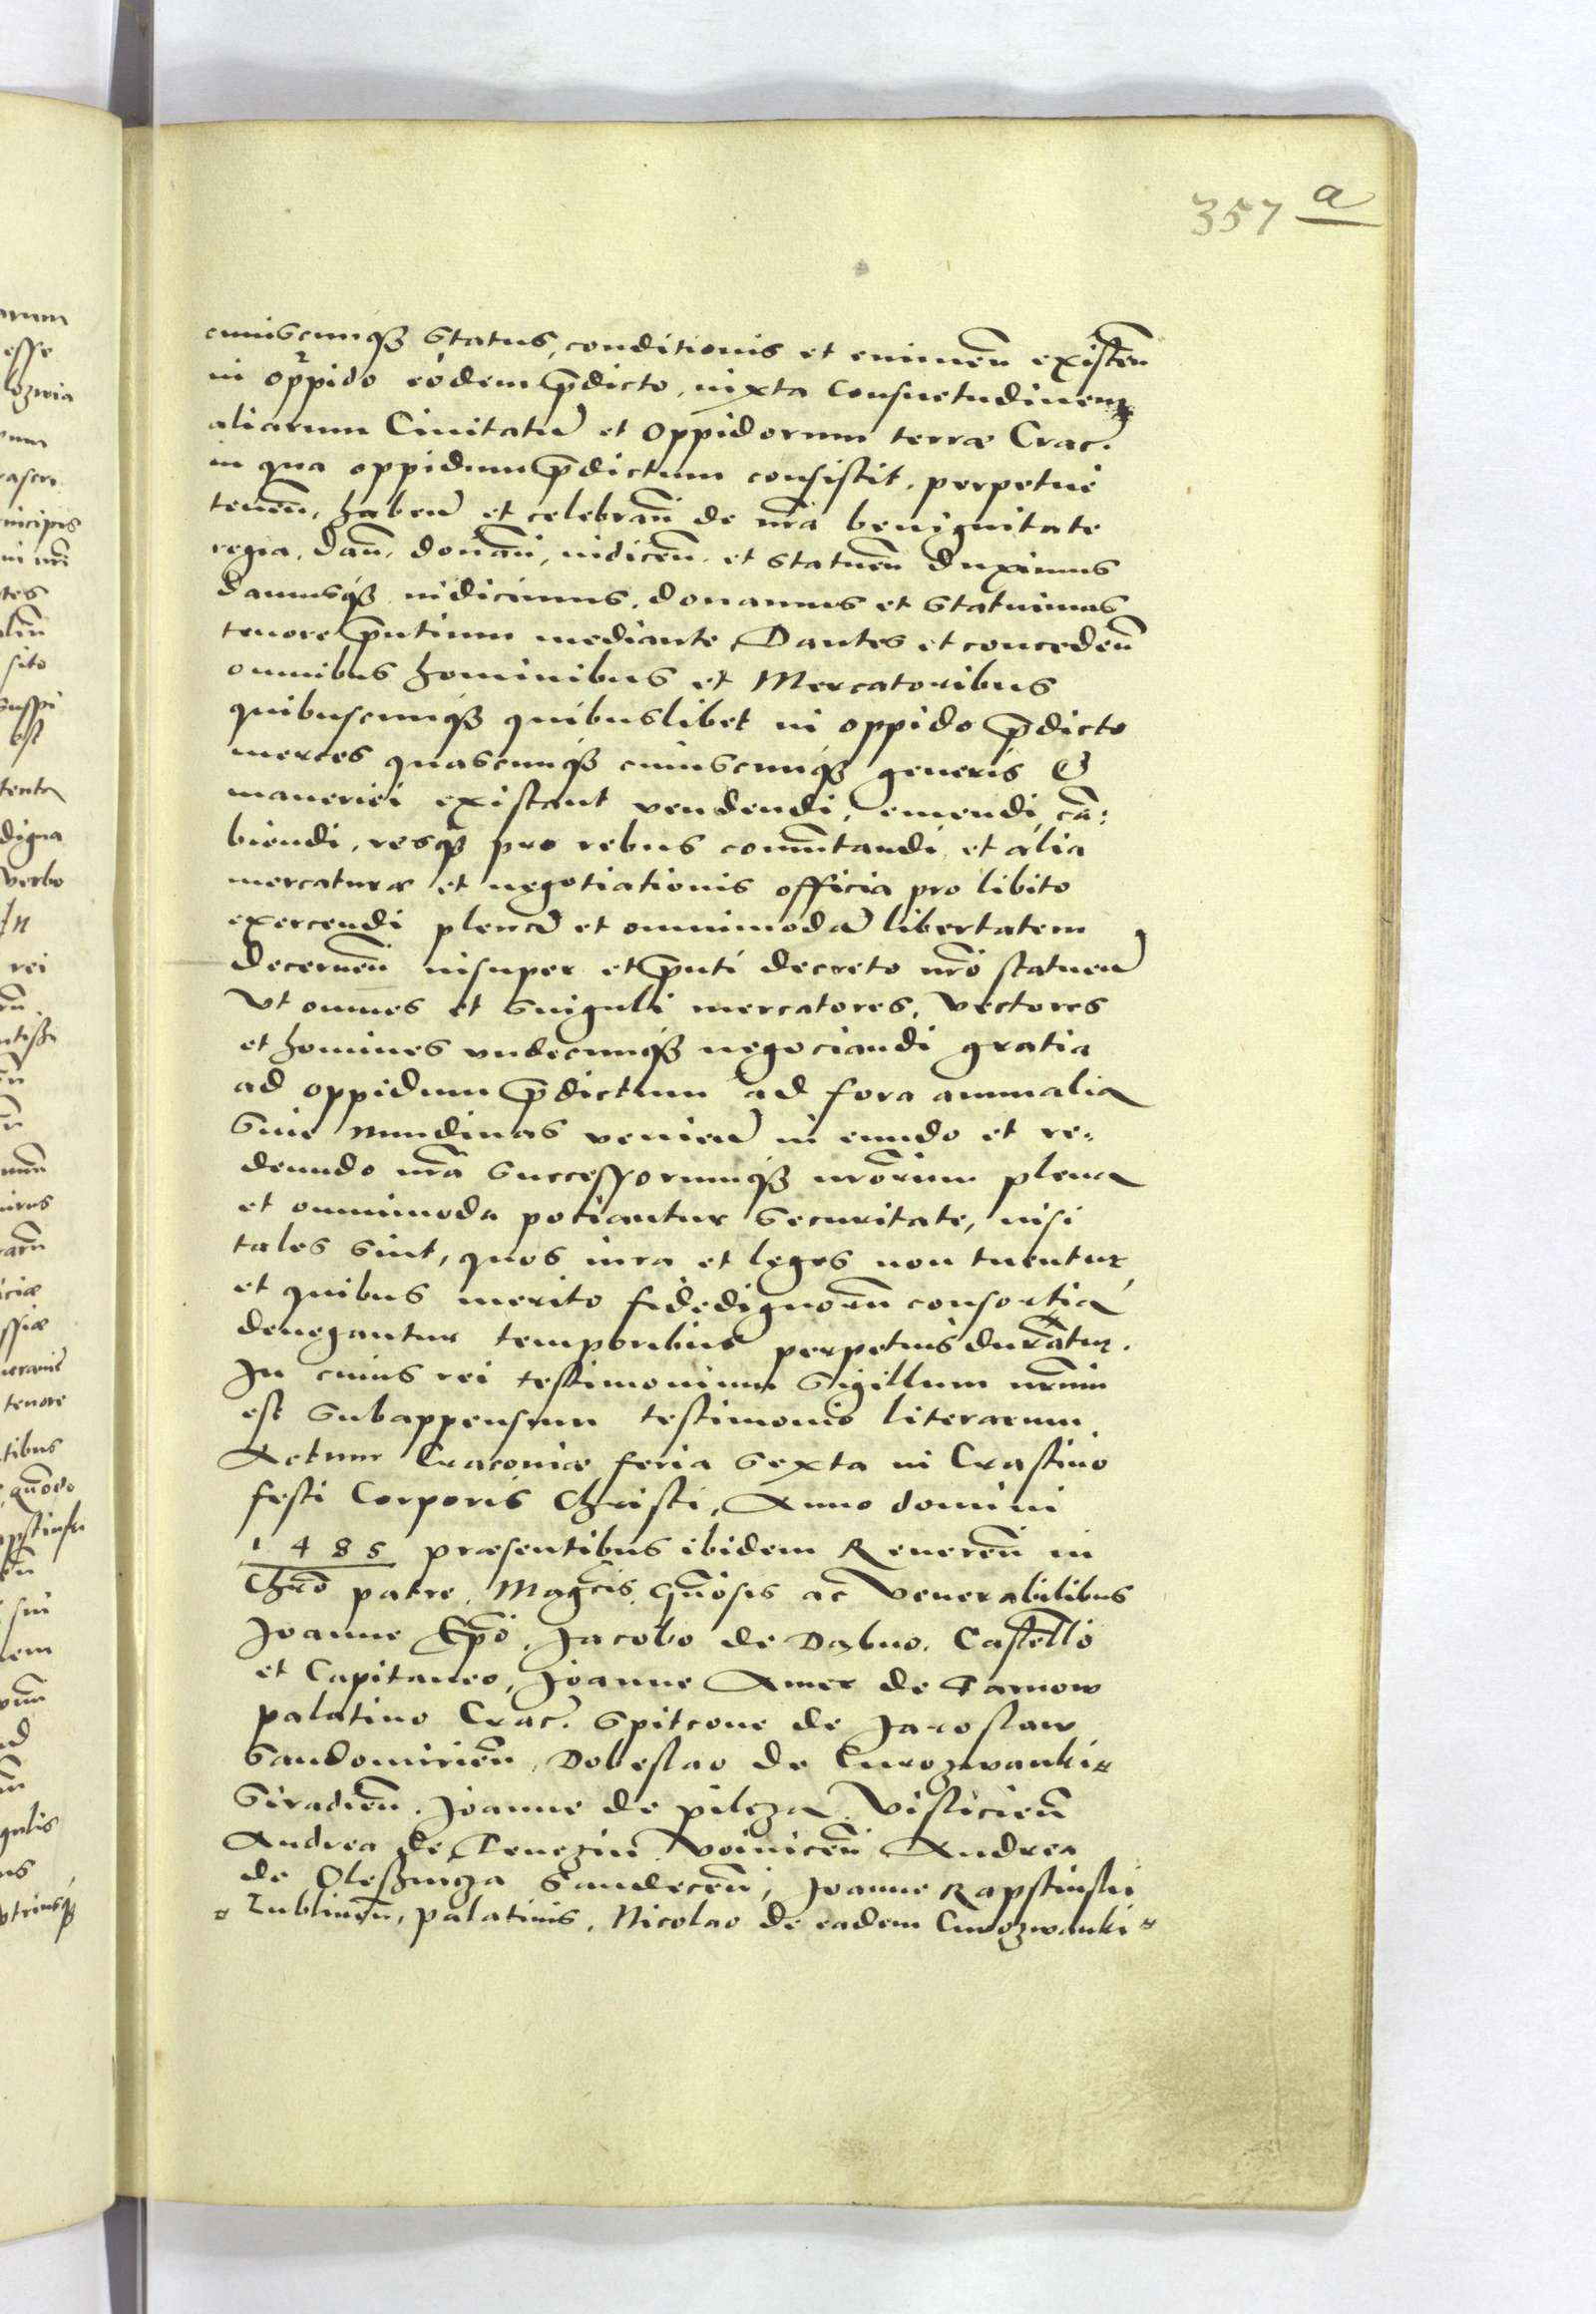 357 a
cuiuscunqꝫ status, conditionis et eminen̄ existen̄
in oppido eodem p̄dicto, iuxta consuetudinem
aliarum Ciuitatū et oppidorum terræ Crac.
in qua oppidum p̄dictum consistit, perpetue
tenen̄, haben̄ et celebran̄ de nr̄a benignitate
regia, dan̄, donan̄, indicen̄ et statuen̄ duximus
damusqꝫ indicimus, donamus et statuimus
tenore p̄ntium mediante, Dantes et conceden̄
omnibus hominibus et Mercatoribus
quibuscunqꝫ quibuslibet in oppido p̄dicto
merces quascunqꝫ cuiuscunqꝫ generis &
maneriei existant vendendi, emendi, cā:
biendi, resqꝫ pro rebus comūtandi, et alia
mercaturæ et negotiationis officia pro libito
exercendi plenā et omnimodā libertatem
decernen̄ insuper et p̄nti decreto nr̄o statuen̄
Vt omnes et singuli mercatores, vectores
et homines vndecunqꝫ negociandi gratia
ad oppidum p̄dictum ad fora annualia
siue nundinas venien̄ in eundo et re:
deundo nr̄a successorumqꝫ nr̄orum plena
et omnimoda potiantur securitate, nisi
tales sint, quos iura et leges non tuentur,
et quibus merito fidedignorū consortia
denegantur temporibus perpetuis duratur.
In cuius rei testimonium Sigillum nr̄um
est subappensum testimonio literarum.
Actum Cracouiæ feria sexta in Crastino
festi Corporis Christi, Anno domini
1485 præsentibus ibidem Reueren̄ in
Chr̄o patre, Magcīs, Gn̄osis ac Venerabilibus
Joanne Ep̄o, Jacobo de Dąbno, Castell̄o
et Capitaneo, Joanne Amor de Tarnow
palatino Crac. Spitcone de Jaroslaw
Sandomirien̄, Dobeslao de Curozwanki
Siradien̄, Joanne de pilcza, Vislicien̄
Andrea de Tenczin Voinicen̄ Andrea
de Oleßnicza Sandecen̄, Joanne Rapstinski
Lublinen̄, palatinis, Nicolao de eadem Curozwanki